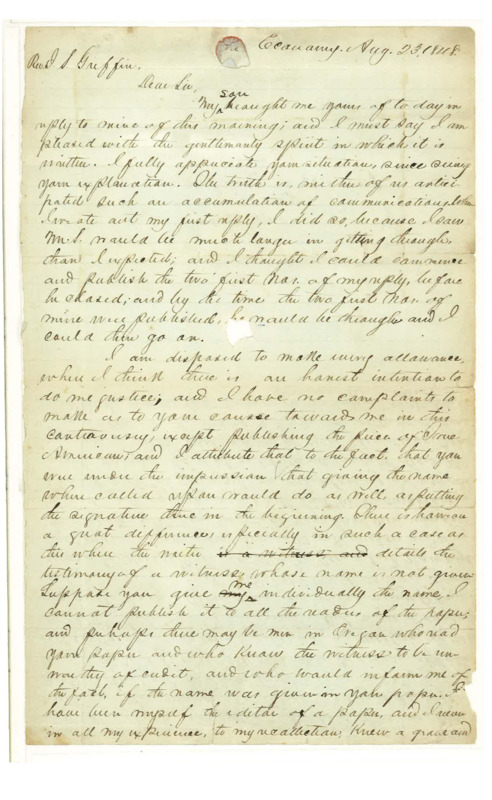 The
Economy. Aug. 23, 1848.
Rev J. S. Griffin.
Dear Sir,
son
My brought me yours of to day in
reply to mine of this morning; and I must say I am
pleased with the gentlemanly spirit in which it is
written. I fully appreciate your situation, since seeing
your explanation. The truth is, neither of us antici-
pated such an accumulation of communications. When
I wrote out my first reply, I did so, because I saw
Mr. S. would be much longer in getting through,
than I expected; and I thought I could commence
and publish the two first Nos. of my reply, before
he closed; and by the time the two first Nos. of
mine were published, he would be through and I
could then go on.
I am disposed to make every allowance,
where I think there is an honest intention to
do me justice; and I have no complaints to
make as to your course towards me in this
controversy, except publishing the piece of "True
American", and I attribute that to the fact, that you
were under the impression that giving the name
when called upon would do as well as putting
the signature there in the beginning. There is however
a great difference, especially in such a case as
this where the writer is a witness, and details the
testimony of a witness, whose name is not given.
Suppose you give my me individually the name, I
cannot publish it to all the readers of the paper;
and perhaps there may be men in Oregon who read
your paper and who know the witness to be un-
worthy of credit, and who would inform me of
the fact, if the name was given in your paper. I
have been myself the editor of a paper, and I never
in all my experience, to my recollection, knew a grave and